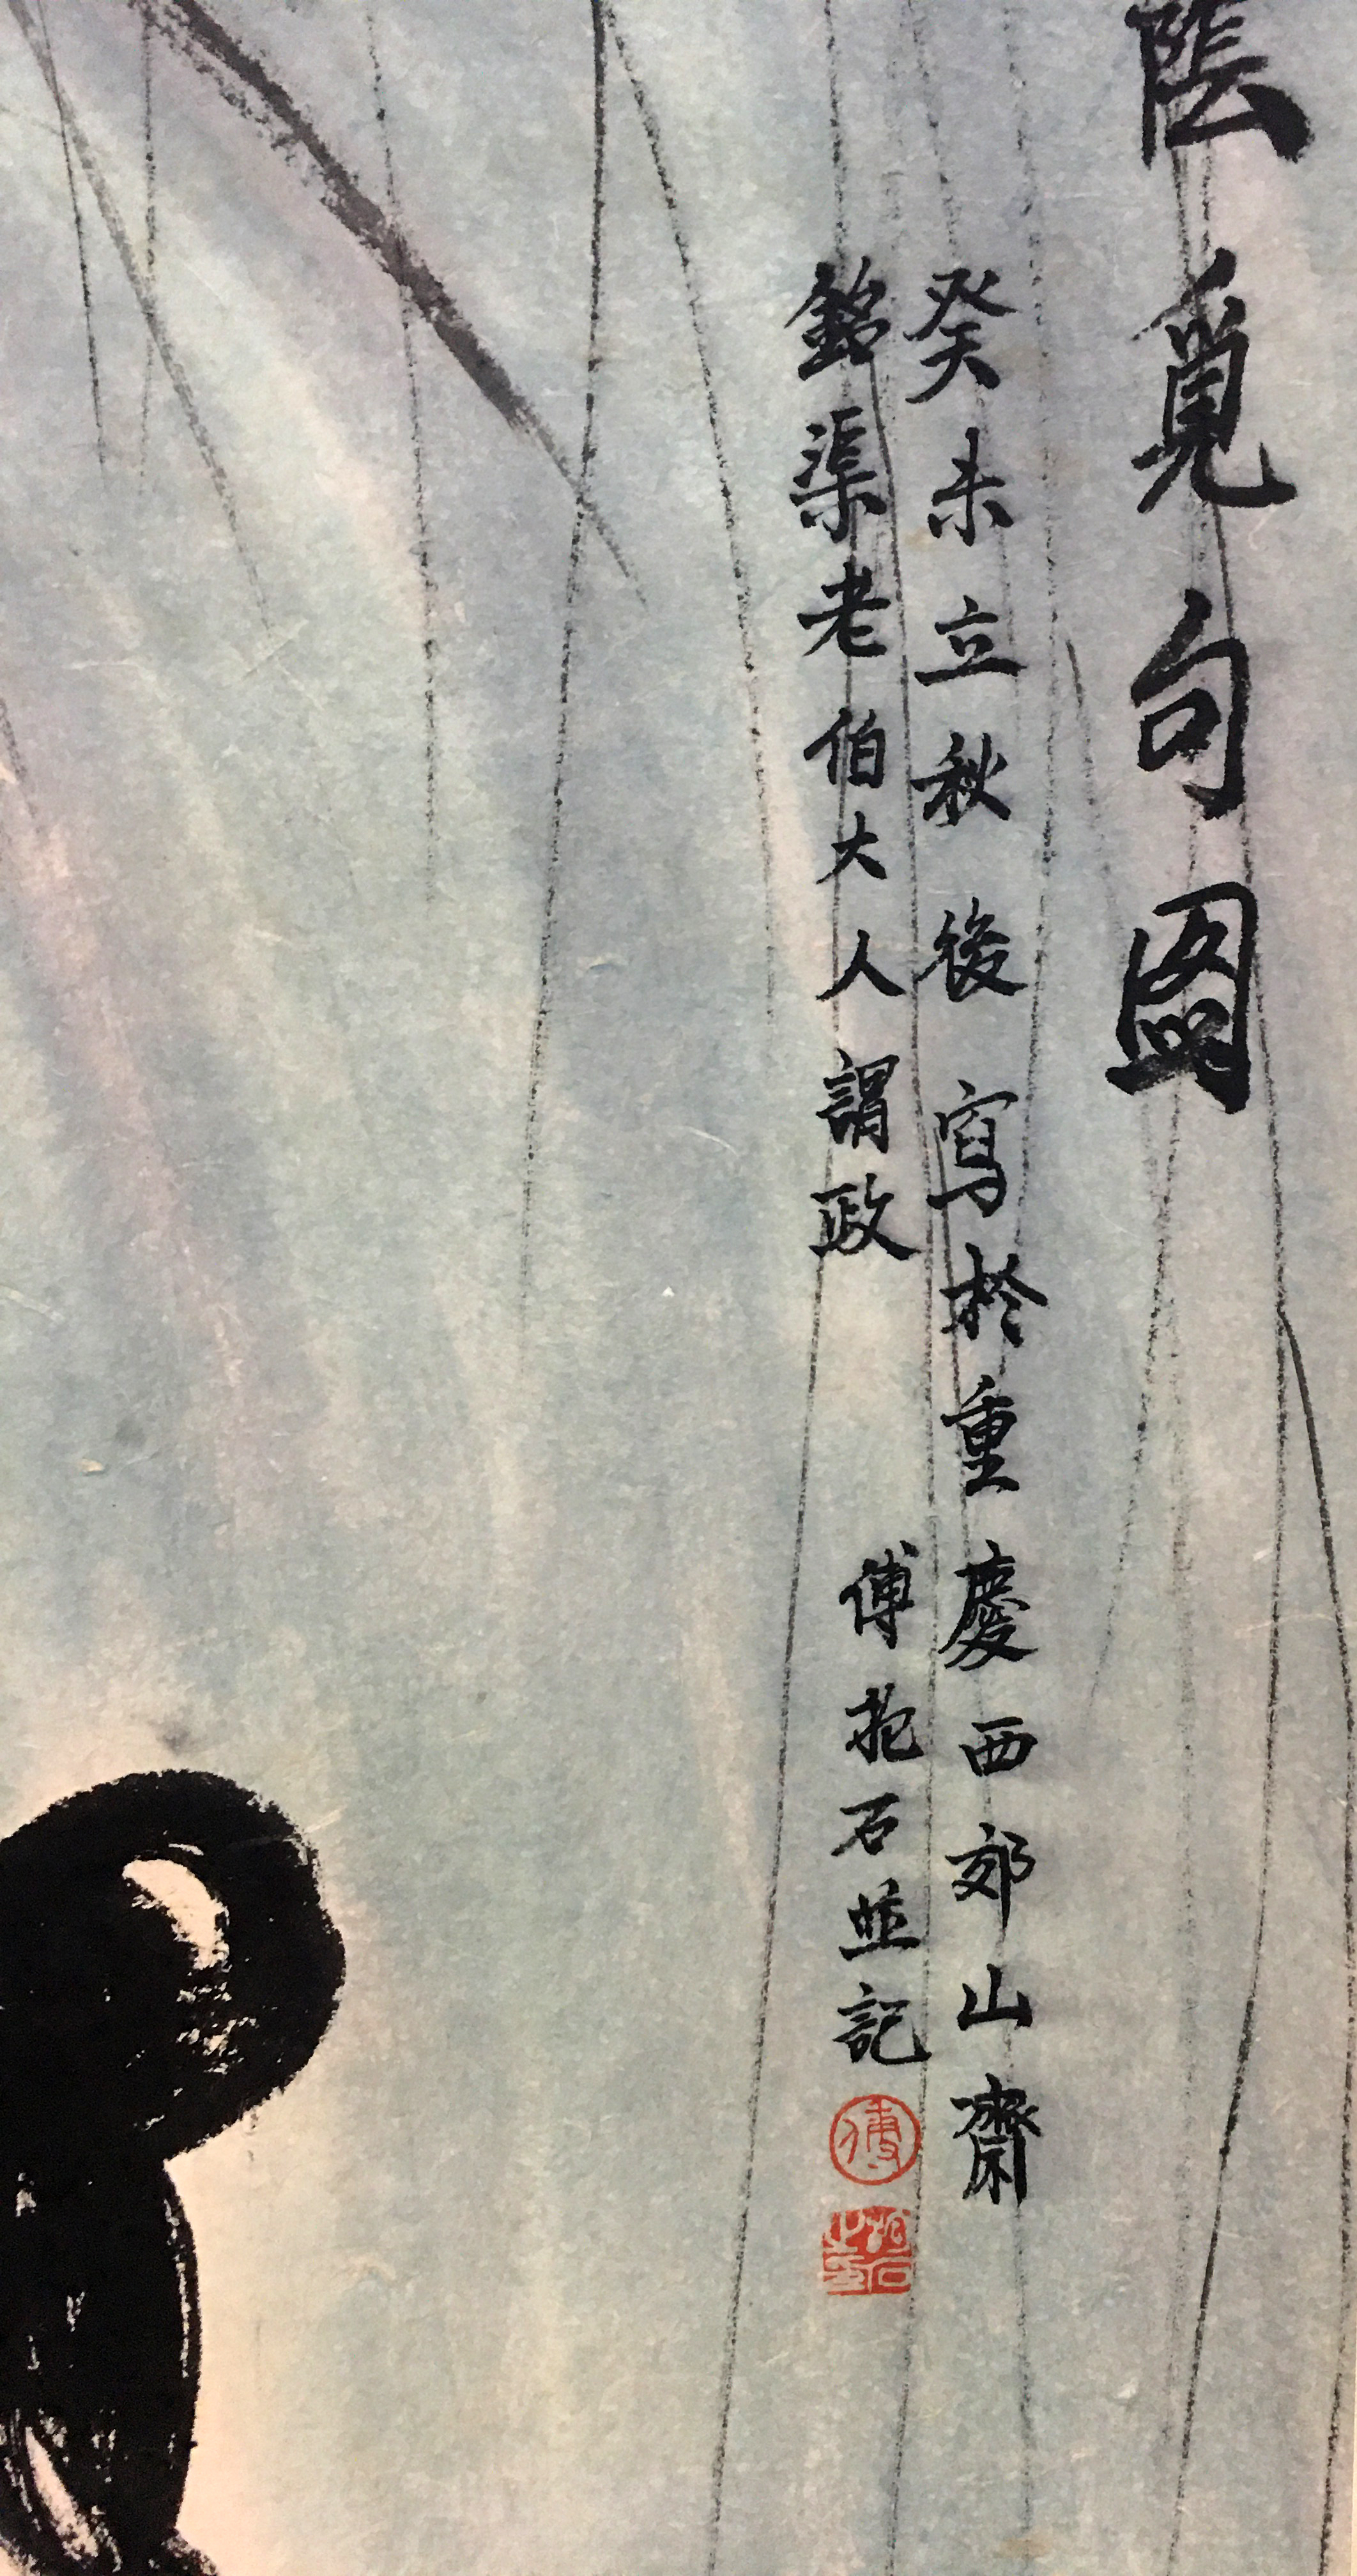 蔭覓句圖
癸未立秋後寫於重慶西郊山齋
銘渠老伯大人謂政
傅抱石並記
傅
抱石之印